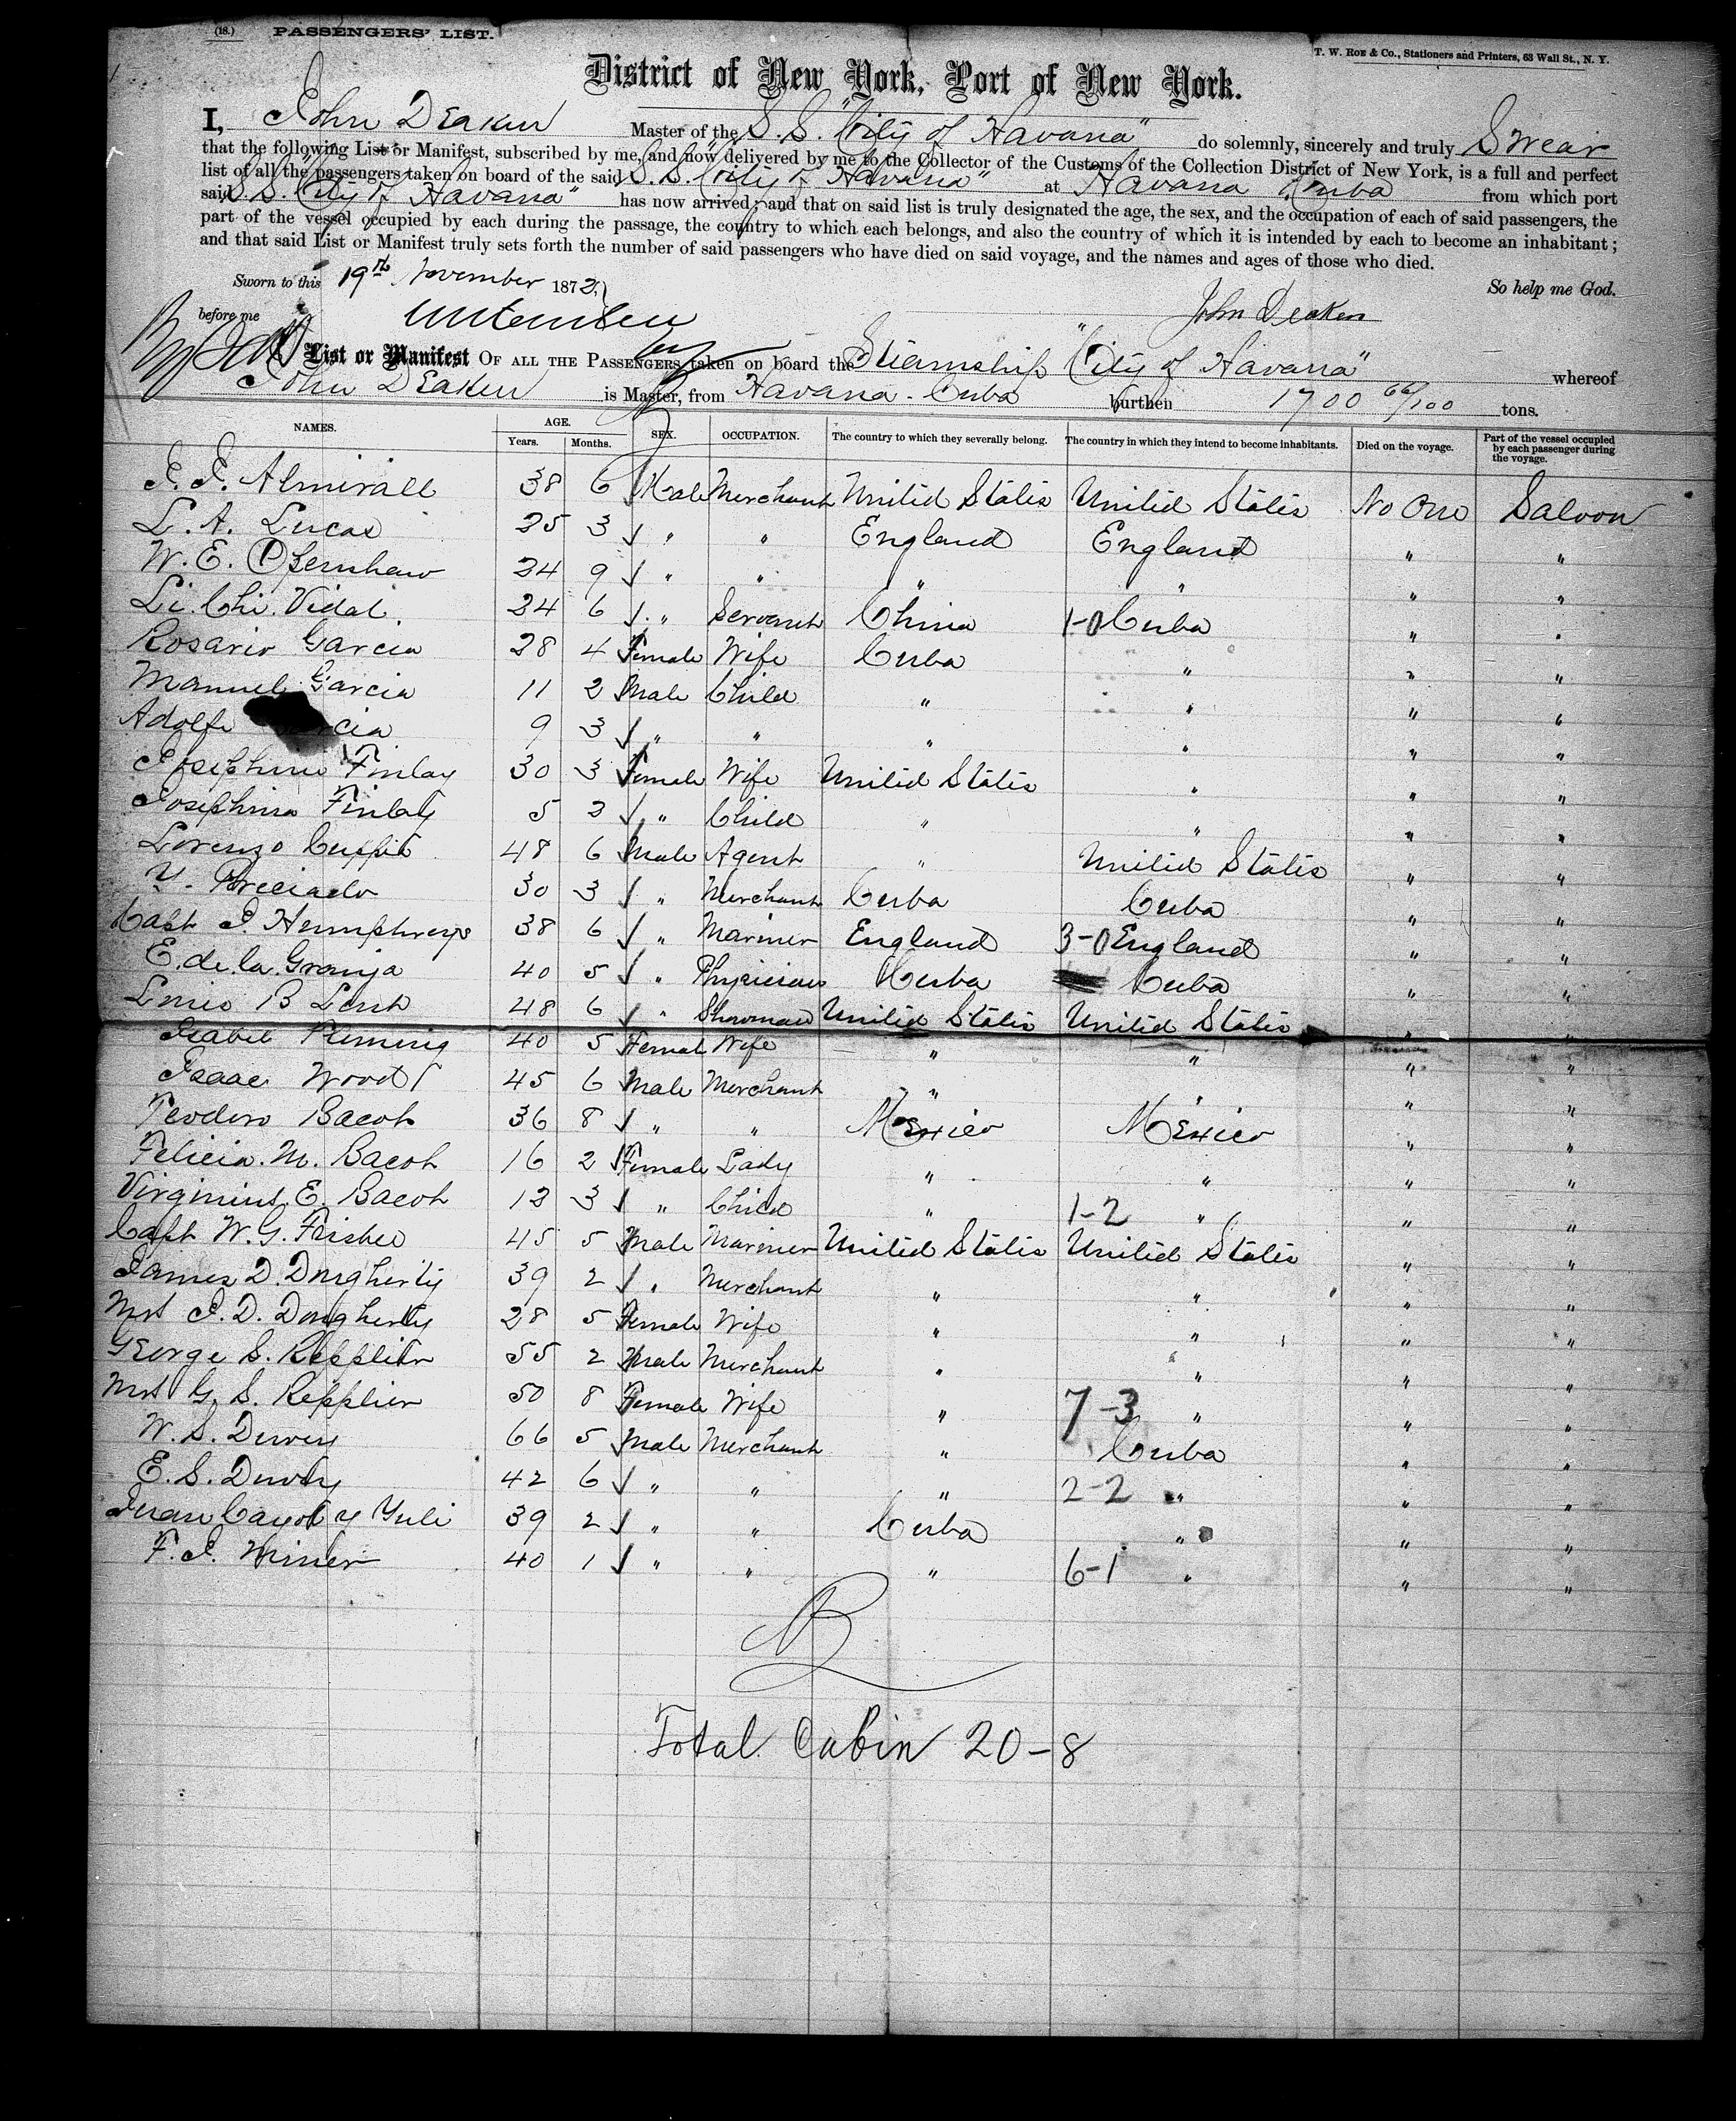 (18.) PASSENGERS' LIST.
T. W. ROE & Co., Stationers and Printers, 63 Wall St., N. Y.
District of New York, Port of New York.
I, John Deaken Master of the S.S. "City of Havana" do solemnly, sincerely and truly Swear
that the following List or Manifest, subscribed by me, and now delivered by me to the Collector of the Customs of the Collection District of New York, is a full and perfect
list of all the passengers taken on board of the said S.S. "City of Havana" at Havana Cuba from which port
said S.S. "City of Havana" has now arrived; and that on said list is truly designated the age, the sex, and the occupation of each of said passengers, the
part of the vessel occupied by each during the passage, the country to which each belongs, and also the country of which it is intended by each to become an inhabitant;
and that said List or Manifest truly sets forth the number of said passengers who have died on said voyage, and the names and ages of those who died.
Sworn to this 19th November 1872, So help me God.
before me John Deaken
List or Manifest OF ALL THE PASSENGERS taken on board the Steamship "City of Havana" whereof
John Deaken is Master, from Havana - Cuba burthen 1700 66/100 tons.
NAMES. AGE. Years. Months. SEX. OCCUPATION. The country to which they severally belong. The country in which they intend to become inhabitants. Died on the voyage. Part of the vessel occupied by each passenger during the voyage.
J. J. Almirall 38 6 Male Merchant United States United States No One Saloon
L. A. Lucas 25 3 " " England England " "
W. E. 24 9 " " " " " "
Li. Chi. Vidal. 24 6 " Servant China 1-0 Cuba " "
Rosario Garcia 28 4 Female Wife Cuba " " "
Manuel Garcia 11 2 Male Child " " " "
Adolfo 9 3 " " " " " "
Josephine Finlay 30 3 Female Wife United States " " "
Josephina Finlay 5 2 " Child " " " "
Lorenzo 48 6 Male Agent " United States " "
Y. Preciado 30 3 " Merchant Cuba Cuba " "
Capt J. Humphreys 38 6 " Mariner England 3-0 England " "
E. de la Granja 40 5 " Physician Cuba Cuba " "
Louis B Lent 48 6 " Showman United States United States " "
Isabel Fleming 40 5 Female Wife " " " "
Isaac Wood 45 6 Male Merchant " " " "
Teodoro Bacot 36 8 " " Mexico Mexico " "
Felicia. M. Bacot 16 2 Female Lady " " " "
Virginius E. Bacot 12 3 " Child " 1-2 " " "
Capt W. G. 45 5 Male Mariner United States United States " "
James D. Dougherty 39 2 " Merchant " " " "
Mrs J. D. Dougherty 28 5 Female Wife " " " "
George S. Repplier 55 2 Male Merchant " " " "
Mrs G. S. Repplier 50 8 Female Wife " 7-3 " " "
W. S. Dewey 66 5 Male Merchant " Cuba " "
E. S. Dewey 42 6 " " " 2-2 " " "
Juan Cayol y Yuli 39 2 " " Cuba " " "
F. J. 40 1 " " " 6-1 " " "
Total Cabin 20-8